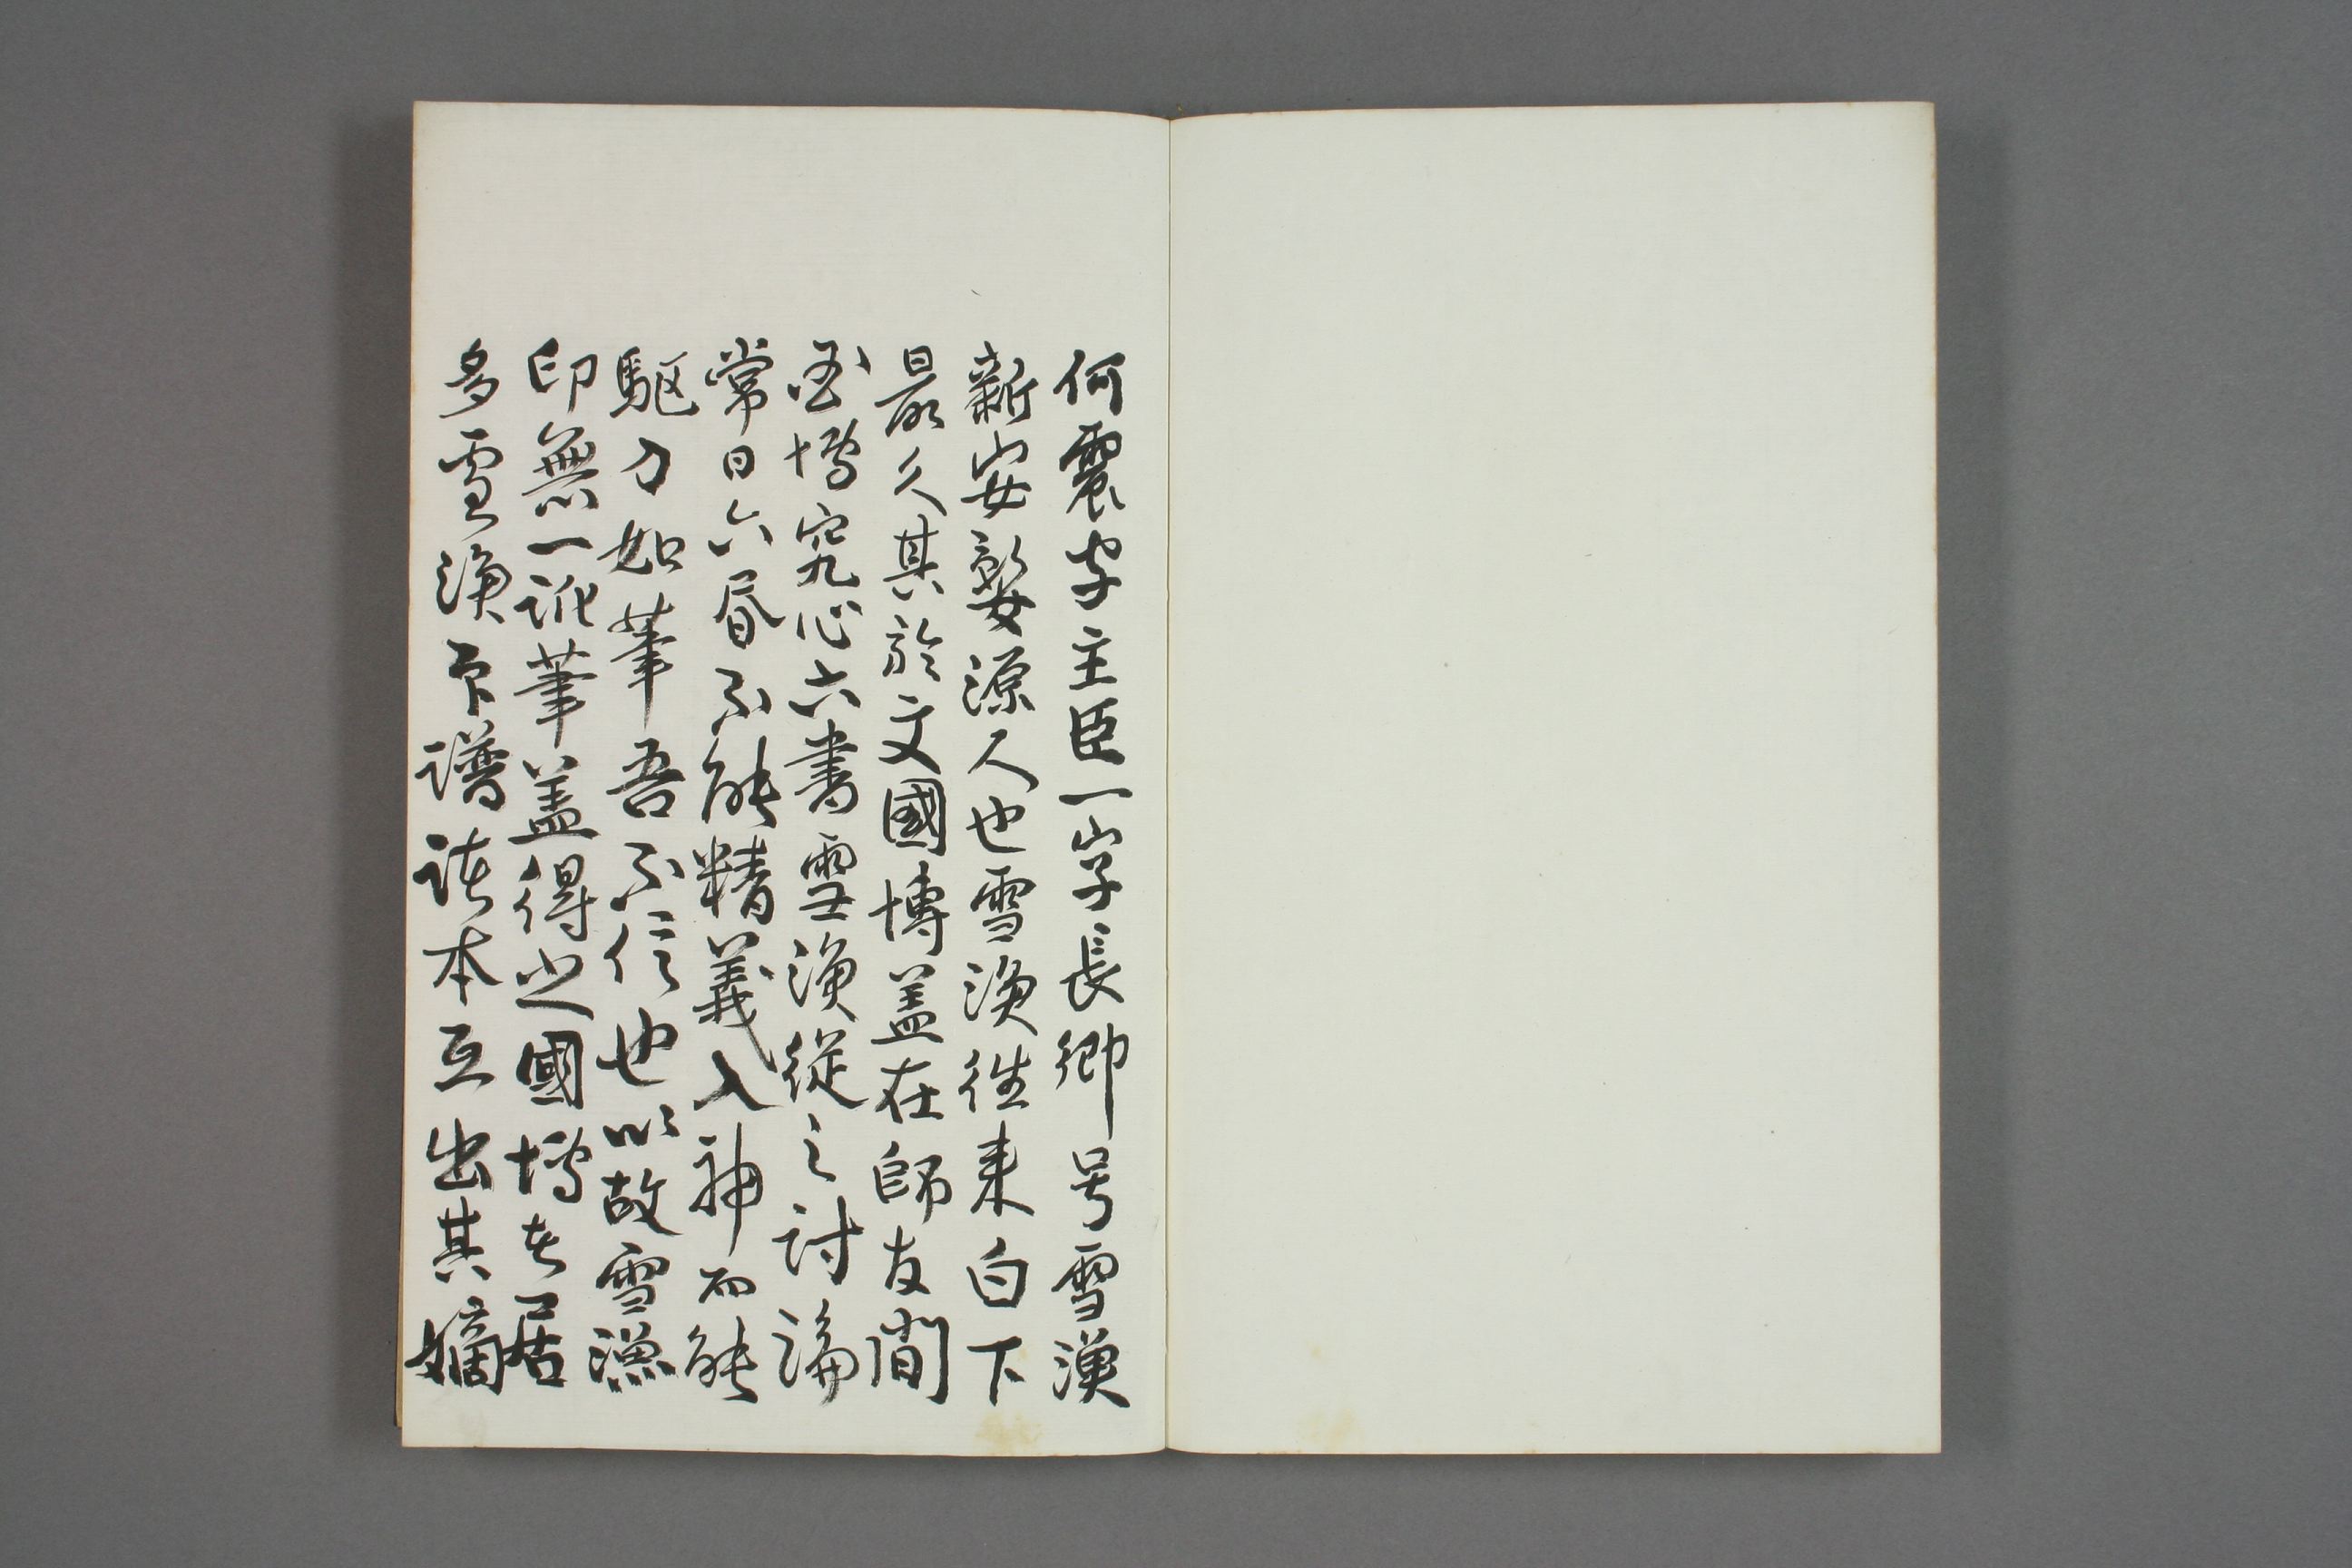 何震字主臣一字長卿号雪漁
新安婺源人也雪漁徃来白下
最久其於文國博盖在師友間
国博究心六書雪漁從之討論
常日六昼不能精義入神而能
駆刀如筆吾不信也以故雪漁
印無一訛筆盖得之國博者居
多雪漁印譜諸本互出其嫡